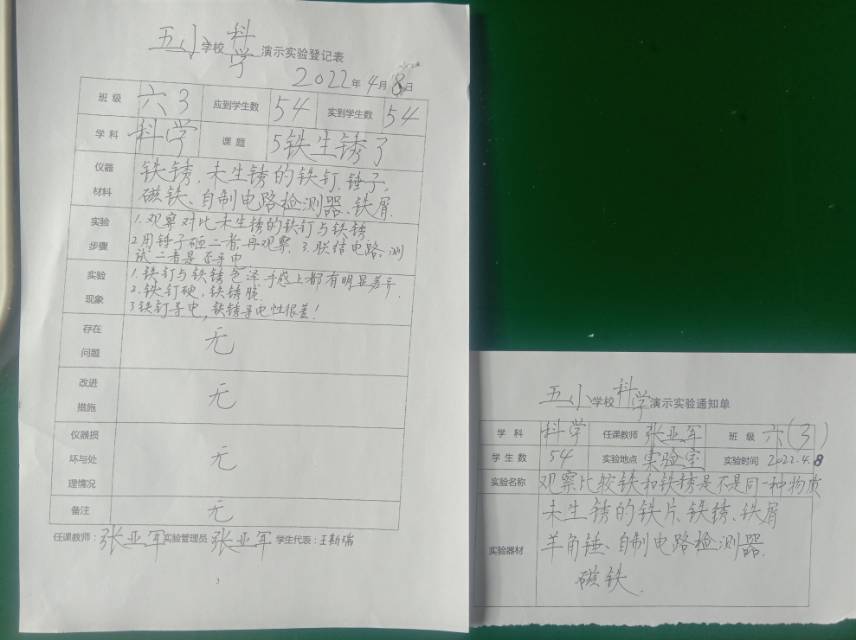 五小学校科学演示实验登记表
2022年4月8日
班级 六3 应到学生数 54 实到学生数 54
学科 科学 课题 5铁生锈了
仪器材料 铁锈、未生锈的铁钉、锤子、
磁铁、自制电路检测器、铁屑
实验步骤 1.观察对比未生锈的铁钉与铁锈
2.用锤子砸二者,再观察. 3.联结电路,测
试二者是否导电
实验现象 1.铁钉与铁锈色泽、手感上都有明显差异.
2.铁钉硬,铁锈脆
3.铁钉导电,铁锈导电性很差!
存在问题 无
改进措施 无
仪器损坏与处理情况 无
备注 无
任课教师:张亚军 实验管理员 张亚军 学生代表:王
五小学校科学演示实验通知单
学科 科学 任课教师 张亚军 班级 六(3)
学生数 54 实验地点 实验室 实验时间 2022.4.8
实验名称 观察比较铁和铁锈是不是同一种物质
实验器材 未生锈的铁片、铁锈、铁屑
羊角锤、自制电路检测器.
磁铁.